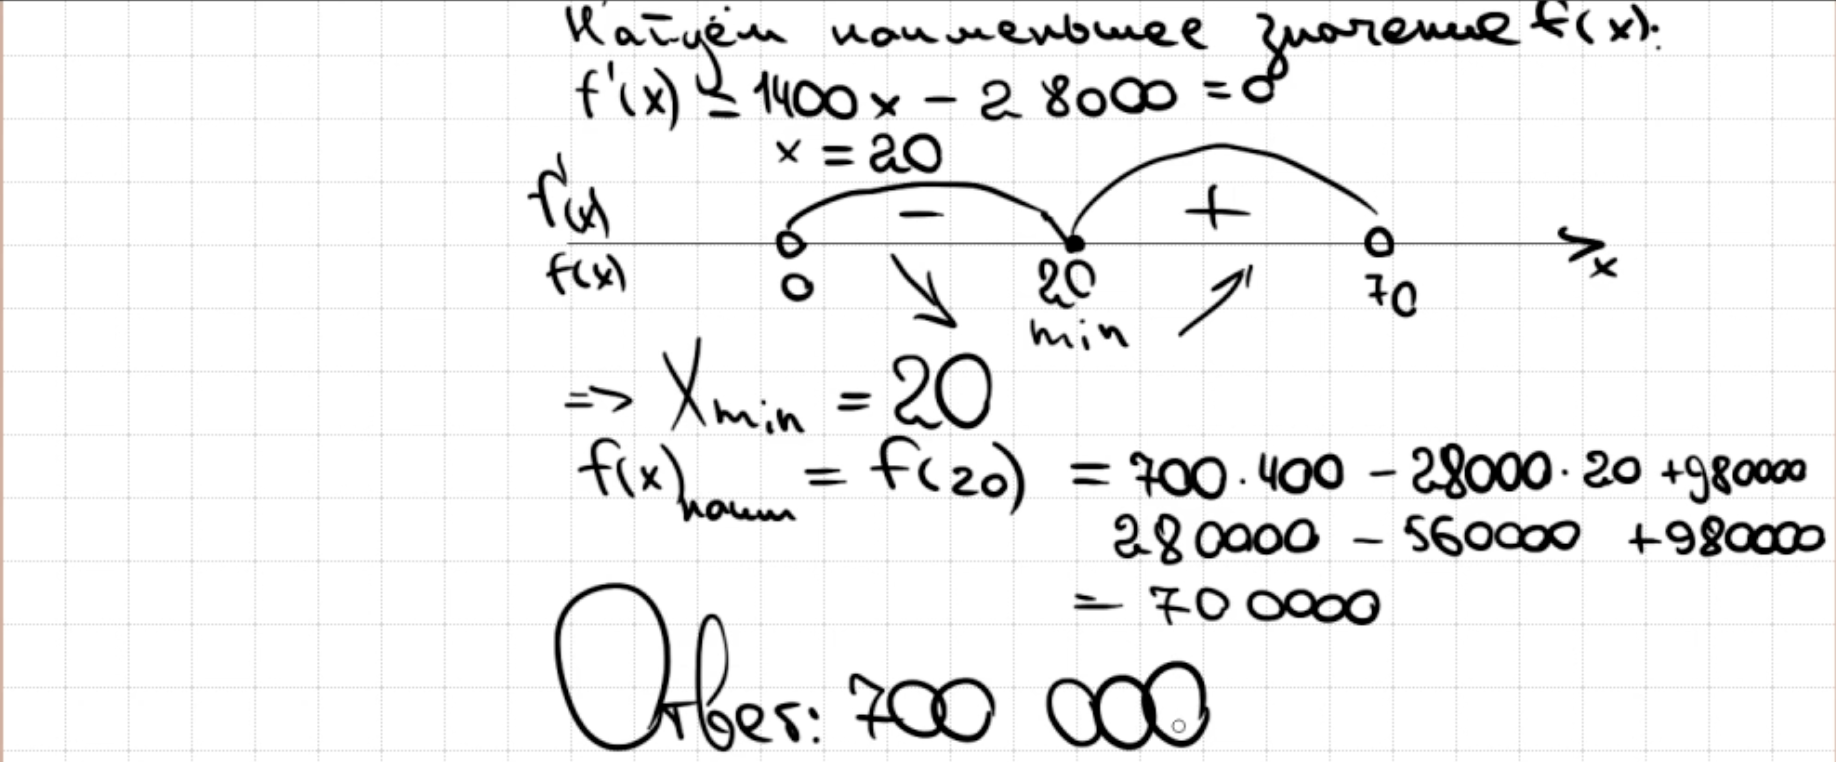 Найдём наименьшее значение f(x):
f'(x) = 1400x - 28000 = 0
x = 20
f'(x) - +
f(x) 0 20 70 x
min
=> Xmin = 20
f(x)наим = f(20) = 700·400 - 28000·20 +980000
280000 - 560000 +980000
= 700000
Ответ: 700 000